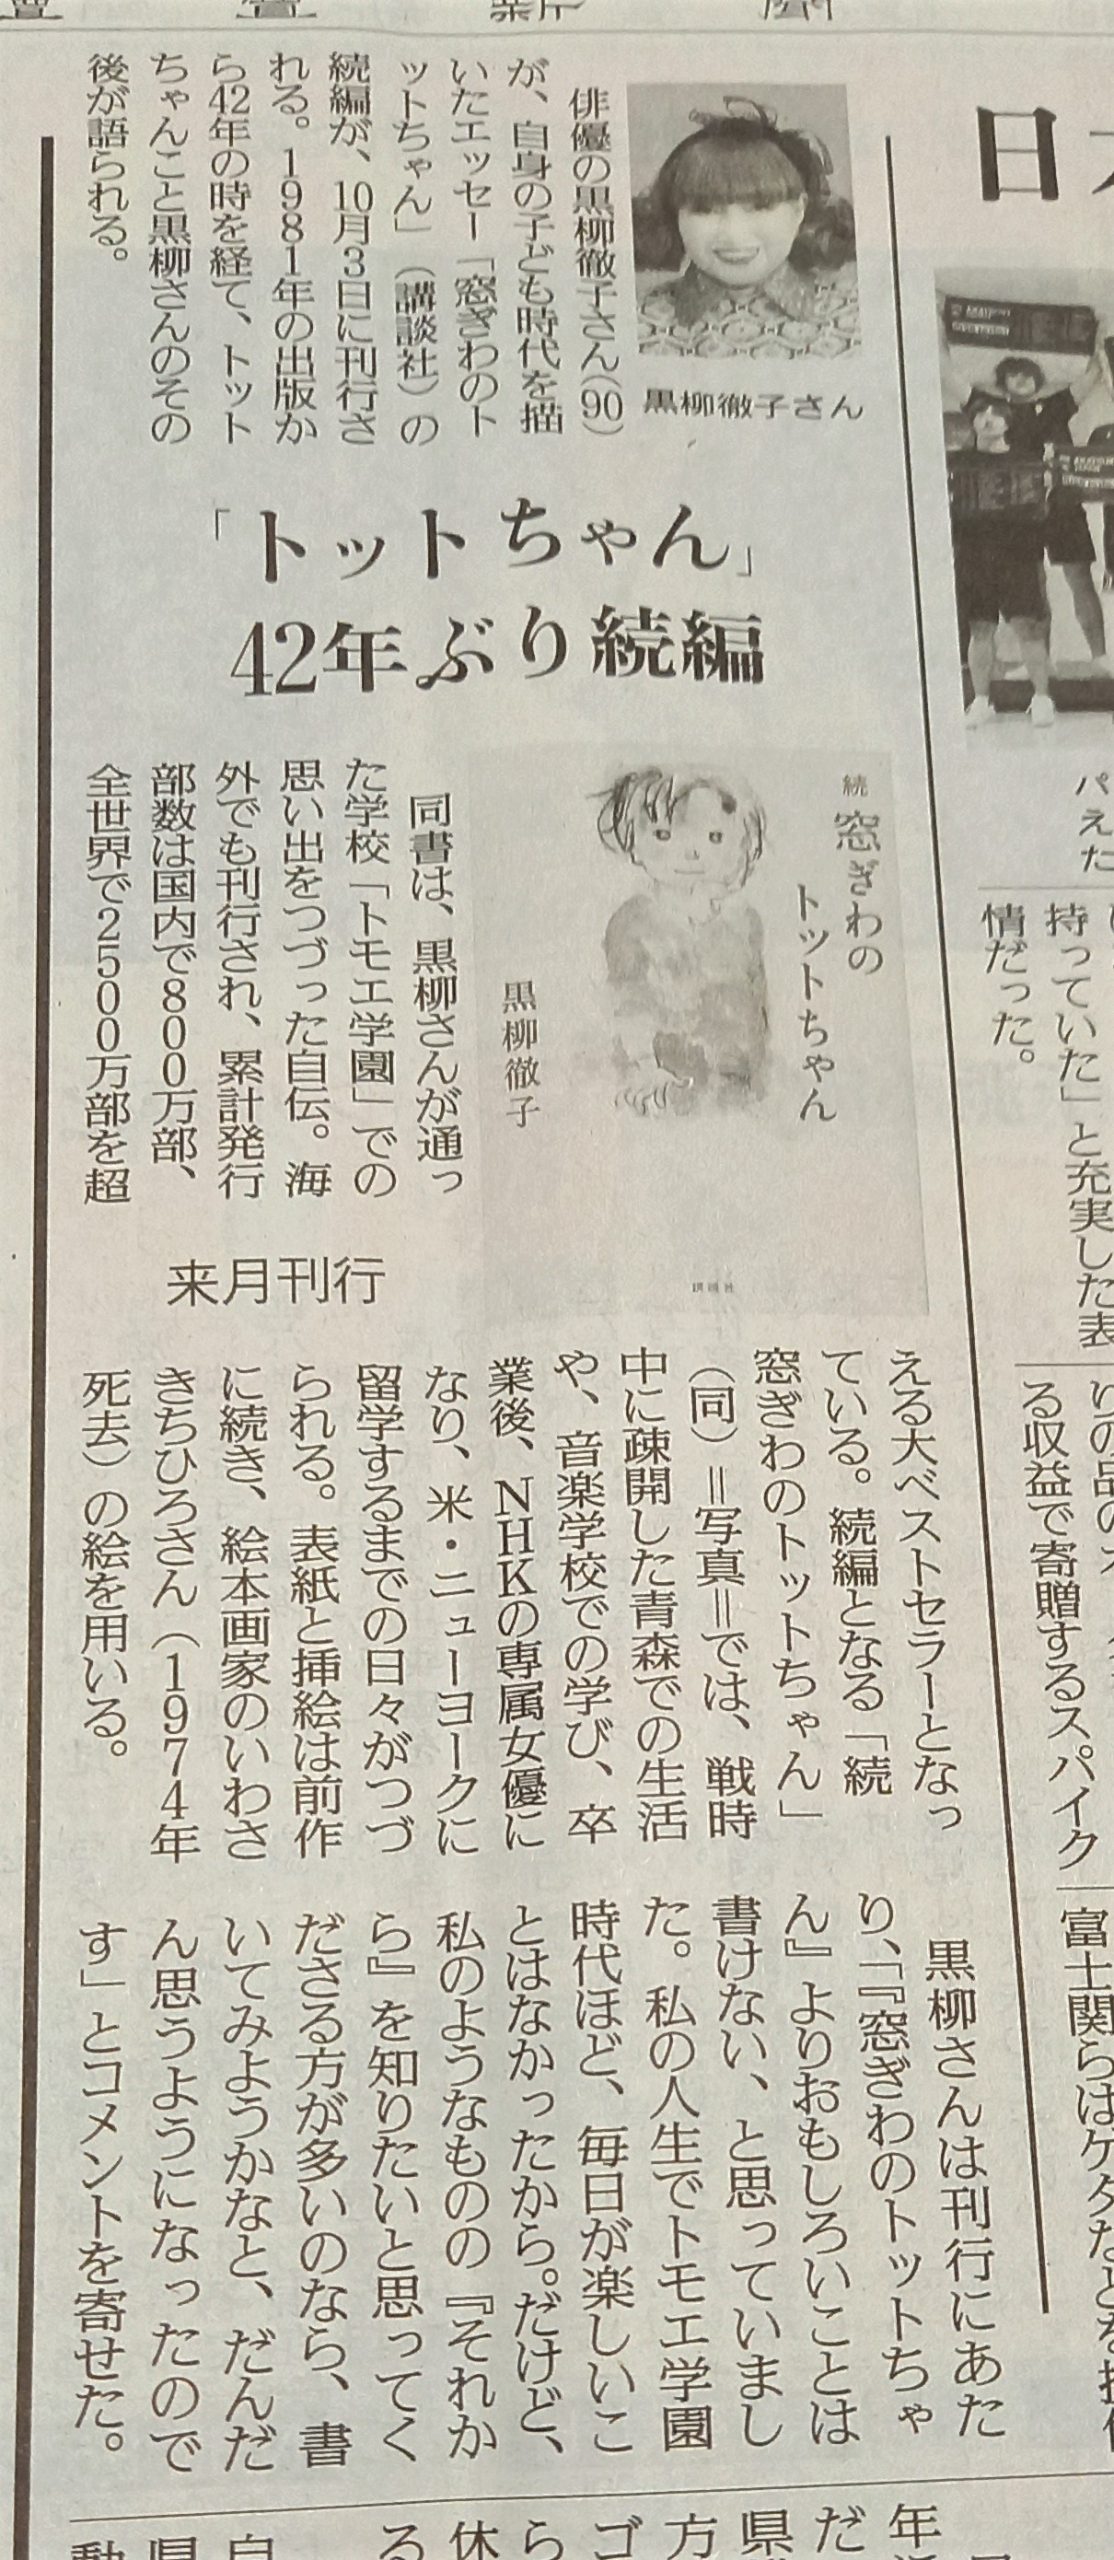 黒柳徹子さん
俳優の黒柳徹子さん(90)
が、自身の子ども時代を描
いたエッセー「窓ぎわのト
ットちゃん」(講談社)の
続編が、10月3日に刊行さ
れる。1981年の出版か
ら42年の時を経て、トット
ちゃんこと黒柳さんのその
後が語られる。
「トットちゃん」
42年ぶり続編
来月刊行
続 窓ぎわの
トットちゃん
黒柳徹子
講談社
同書は、黒柳さんが通っ
た学校「トモエ学園」での
思い出をつづった自伝。海
外でも刊行され、累計発行
部数は国内で800万部、
全世界で2500万部を超
える大ベストセラーとなっ
ている。続編となる「続
窓ぎわのトットちゃん」
(同)=写真=では、戦時
中に疎開した青森での生活
や、音楽学校での学び、卒
業後、NHKの専属女優に
なり、米・ニューヨークに
留学するまでの日々がつづ
られる。表紙と挿絵は前作
に続き、絵本画家のいわさ
きちひろさん(1974年
死去)の絵を用いる。
黒柳さんは刊行にあた
り、「『窓ぎわのトットちゃ
ん』よりおもしろいことは
書けない、と思っていまし
た。私の人生でトモエ学園
時代ほど、毎日が楽しいこ
とはなかったから。だけど、
私のようなものの『それか
ら』を知りたいと思ってく
ださる方が多いのなら、書
いてみようかなと、だんだ
ん思うようになったので
す」とコメントを寄せた。
えた
持っていた」と充実した表
情だった。
る収益で寄贈するスパイク
富士関らはゲタなどを提供